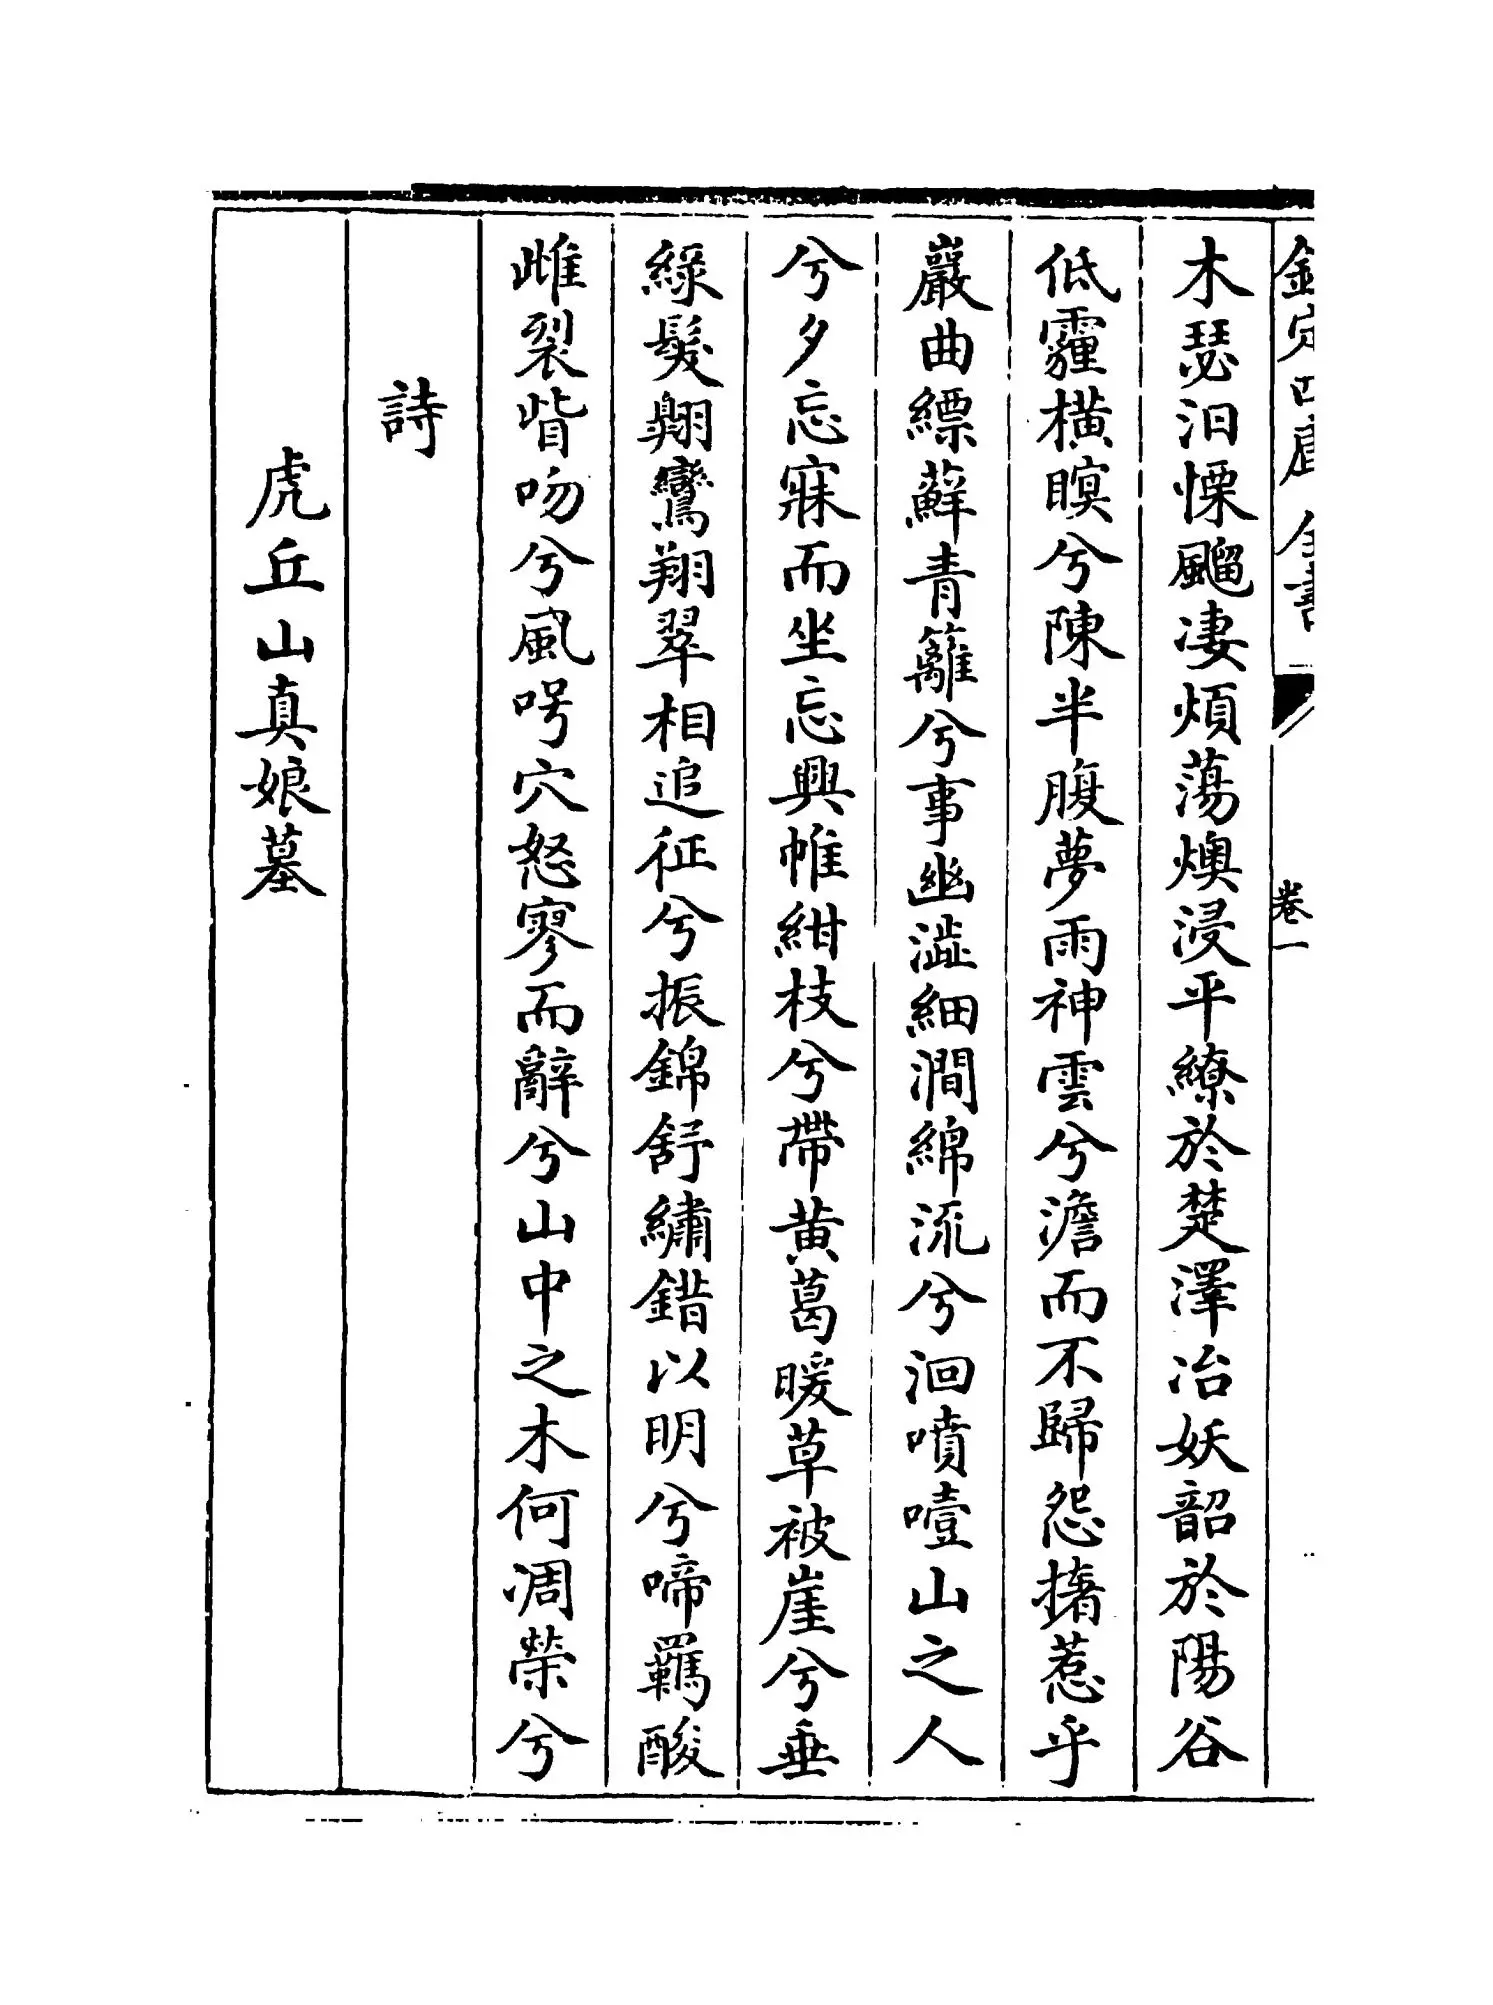 欽定四庫全書
卷一
木瑟汨慄飀淒煩蕩燠浸平繚於楚澤冶妖韶於陽谷
低霾橫瞑兮陳半腹夢雨神雲兮澹而不歸怨撦惹乎
巖曲縹蘚青籬兮事幽澁細澗綿流兮洄噴噎山之人
兮夕忘寐而坐忘興帷紺枝兮帶黃葛暖草被崖兮垂
綠髮翺鸞翔翠相追征兮振錦舒繡錯以明兮啼羈酸
雌裂眥吻兮風呺穴怒寥而辭兮山中之木何凋榮兮
詩
虎丘山真娘墓